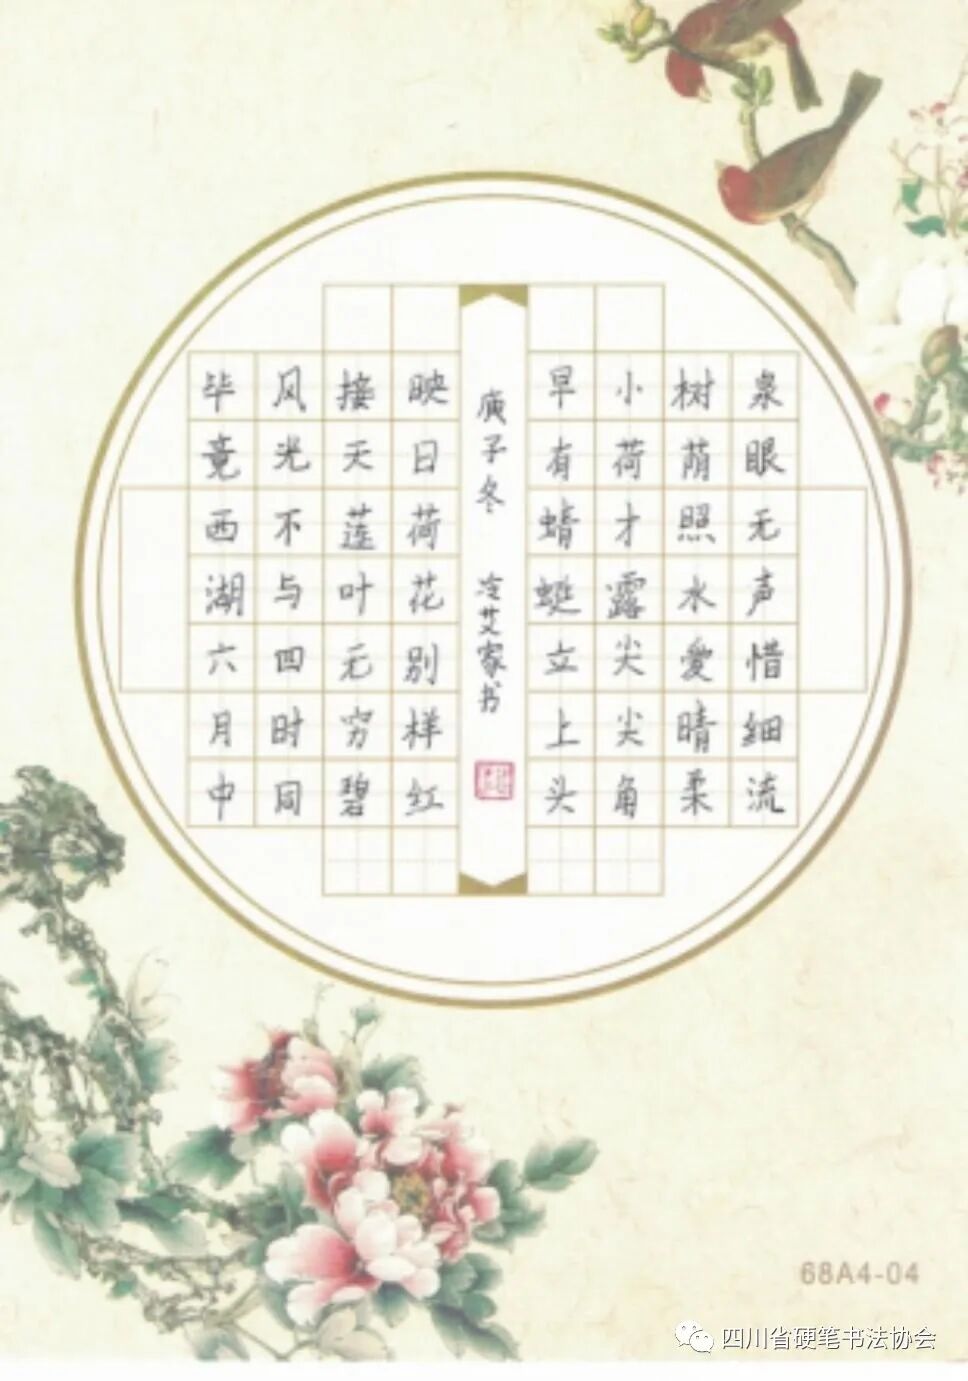 泉眼无声惜细流
树荫照水愛晴柔
小荷才露尖尖角
早有蜻蜓立上头
毕竟西湖六月中
风光不与四时同
接天莲叶无穷碧
映日荷花别样红
庚子冬 冷艾家书
68A4-04
四川省硬笔书法协会